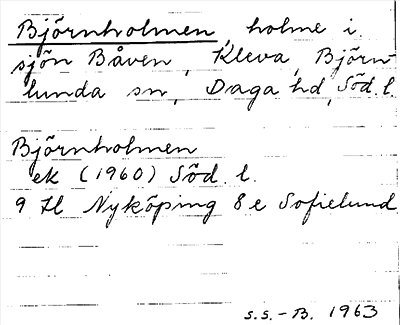 Björnholmen, holme i
sjön Båven, Kleva, Björn-
lunda sn, Daga hd, Söd. l.
Björnholmen
ek (1960) Söd. l.
9 H Nyköping 8 e Sofielund
S.S.-B. 1963